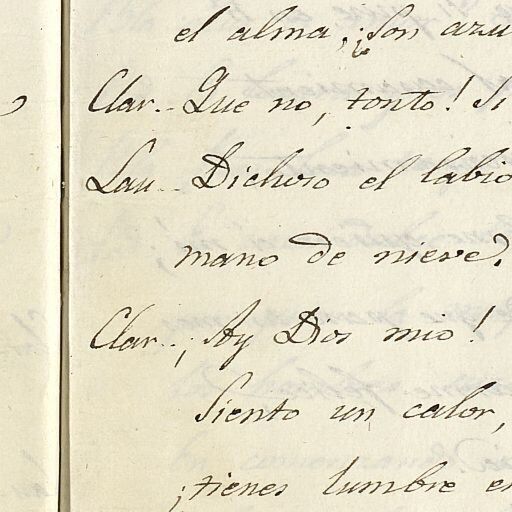 el alma, ¡Son azu
Clar.. Que no, tonto! Si
Lau.. Dichoso el labio
mano de nieve.
Clar.. ¡Ay Dios mio!
Siento un calor,
¡tienes lumbre en